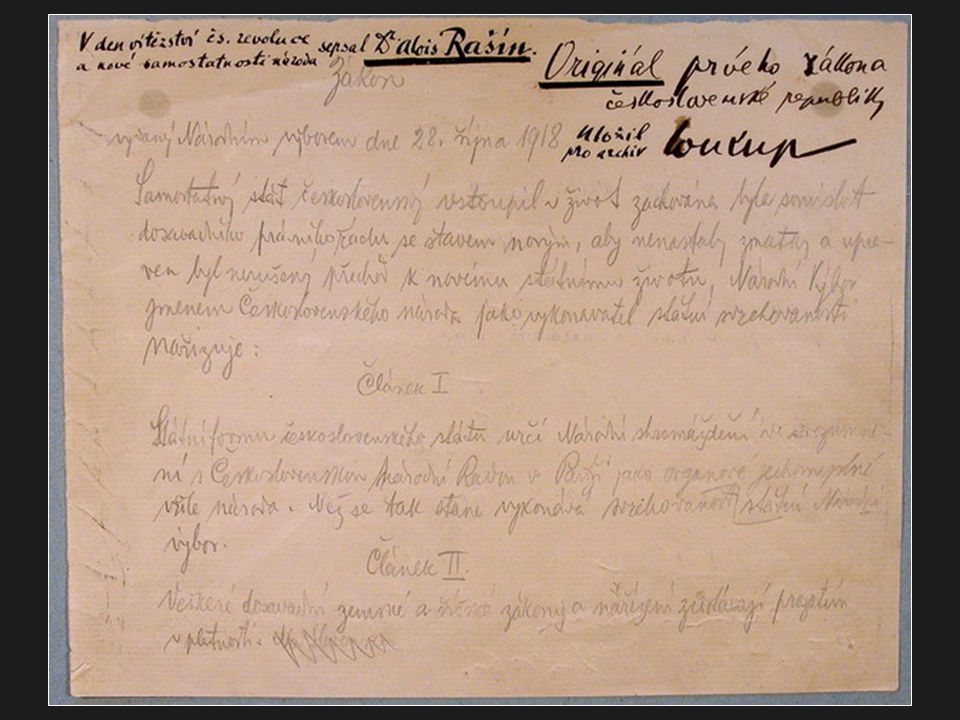 V den vítězství čs. revoluce
a nové samostatnosti národa
sepsal Dr. Alois Rašín.
Originál prvého zákona
československé republiky
uložil
pro archiv Soukup
Zákon
vydaný Národním výborem dne 28. října 1918
Samostatný stát československý vstoupil v život zachována byla souvislost
dosavadního právního řádu se stavem novým, aby nenastaly zmatky a upra-
ven byl nerušený přechod k novému státnímu životu, Národní Výbor
jmenem Československého národa jako vykonavatel státní svrchovanosti
nařizuje:
Článek I
Státní formu československého státu určí Národní shromáždění ve srozumě-
ní s Československou Národní Radou v Paříži jako orgánové jednomyslné
vůle národa. Než se tak stane vykonává svrchovanost státní Národní
výbor.
Článek II.
Veškeré dosavadní zemské a říšské zákony a nařízení zůstávají prozatím
v platnosti.